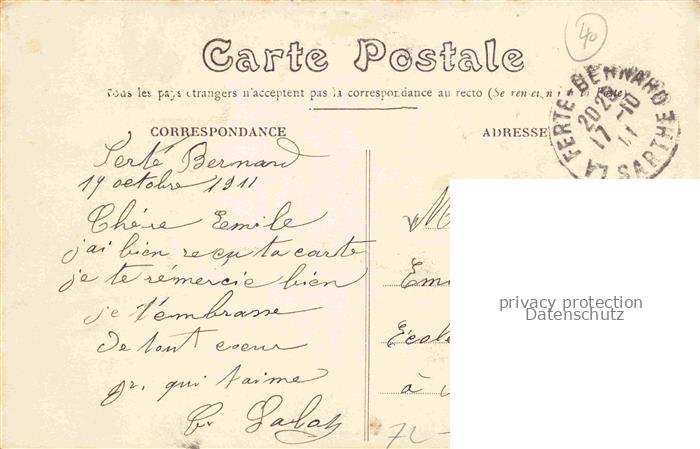 40
Carte Postale
Tous les pays étrangers n'acceptent pas la correspondance au recto (Se renseigner à la Poste)
CORRESPONDANCE
ADRESSE
LA FERTE-BERNARD SARTHE
20 25
17 -10
11
Ferté Bernard
17 octobre 1911
Chère Emile
j'ai bien reçu ta carte
je te rémercie bien
je t'embrasse
de tout coeur
qui t'aime
M
Em
École
à
72-
privacy protection
Datenschutz